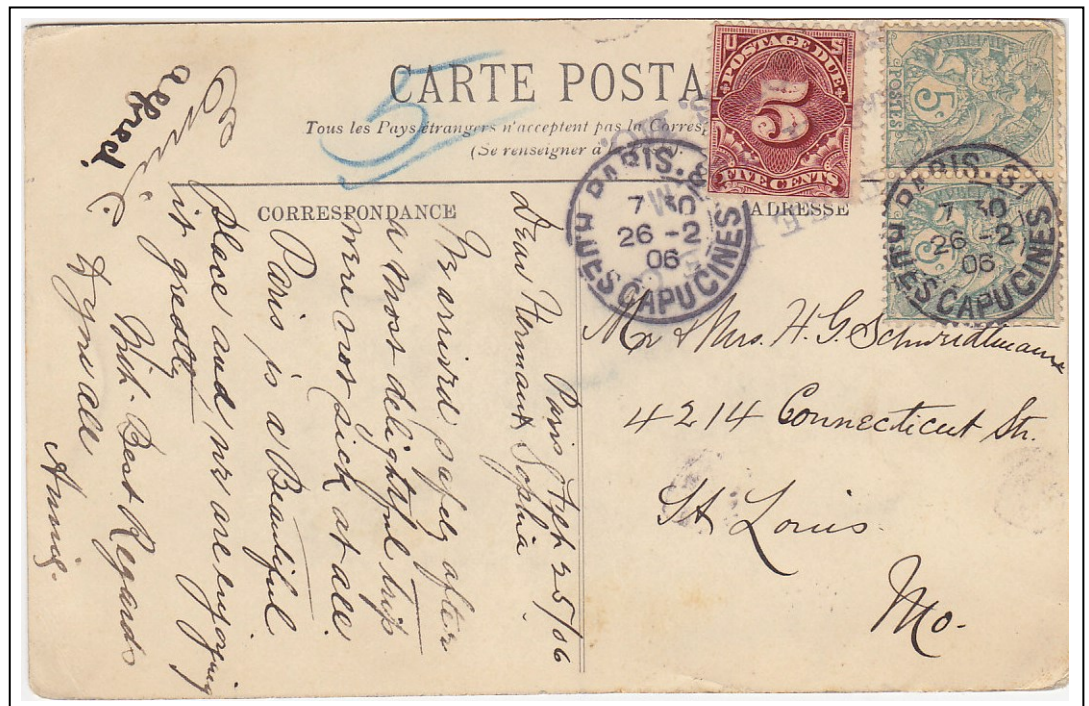 CARTE POSTA
Tous les Pays étrangers n'acceptent pas la Corres
(Se renseigner à
5
U S
POSTAGE DUE
5
FIVE CENTS
POSTES
5c
5c
PARIS. 81
7 30
26 - 2
06
R. DES CAPUCINES
PARIS. 81
7 30
26 - 2
06
R. DES CAPUCINES
CORRESPONDANCE
ADRESSE
Paris Feb 25/06
Dear Herman & Sophia
We arrived safely after
a most delightful trip
were not sick at all.
Paris is a Beautiful
place and we are enjoying
it greatly
With Best Regards
Annie.
Alfred.
Mr & Mrs. H. G.
4214 Connecticut Str.
St Louis
Mo.